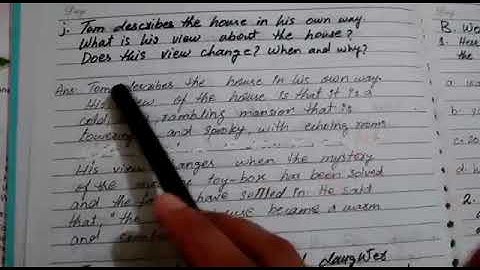 j. Tom describes the house in his own way.
What is his view about the house?
Does this view change? When and why?
Ans: Tom describes the house in his own way.
His view of the house is that it is a
cold, rambling mansion that is
towering and spooky, with echoing rooms
His view changes when the mystery
of the toy-box has been solved
and the have settled in. He said
that, "the house became a warm
and
daughter
B. W
1. Her
the
a.
b.
c.
d.
2.